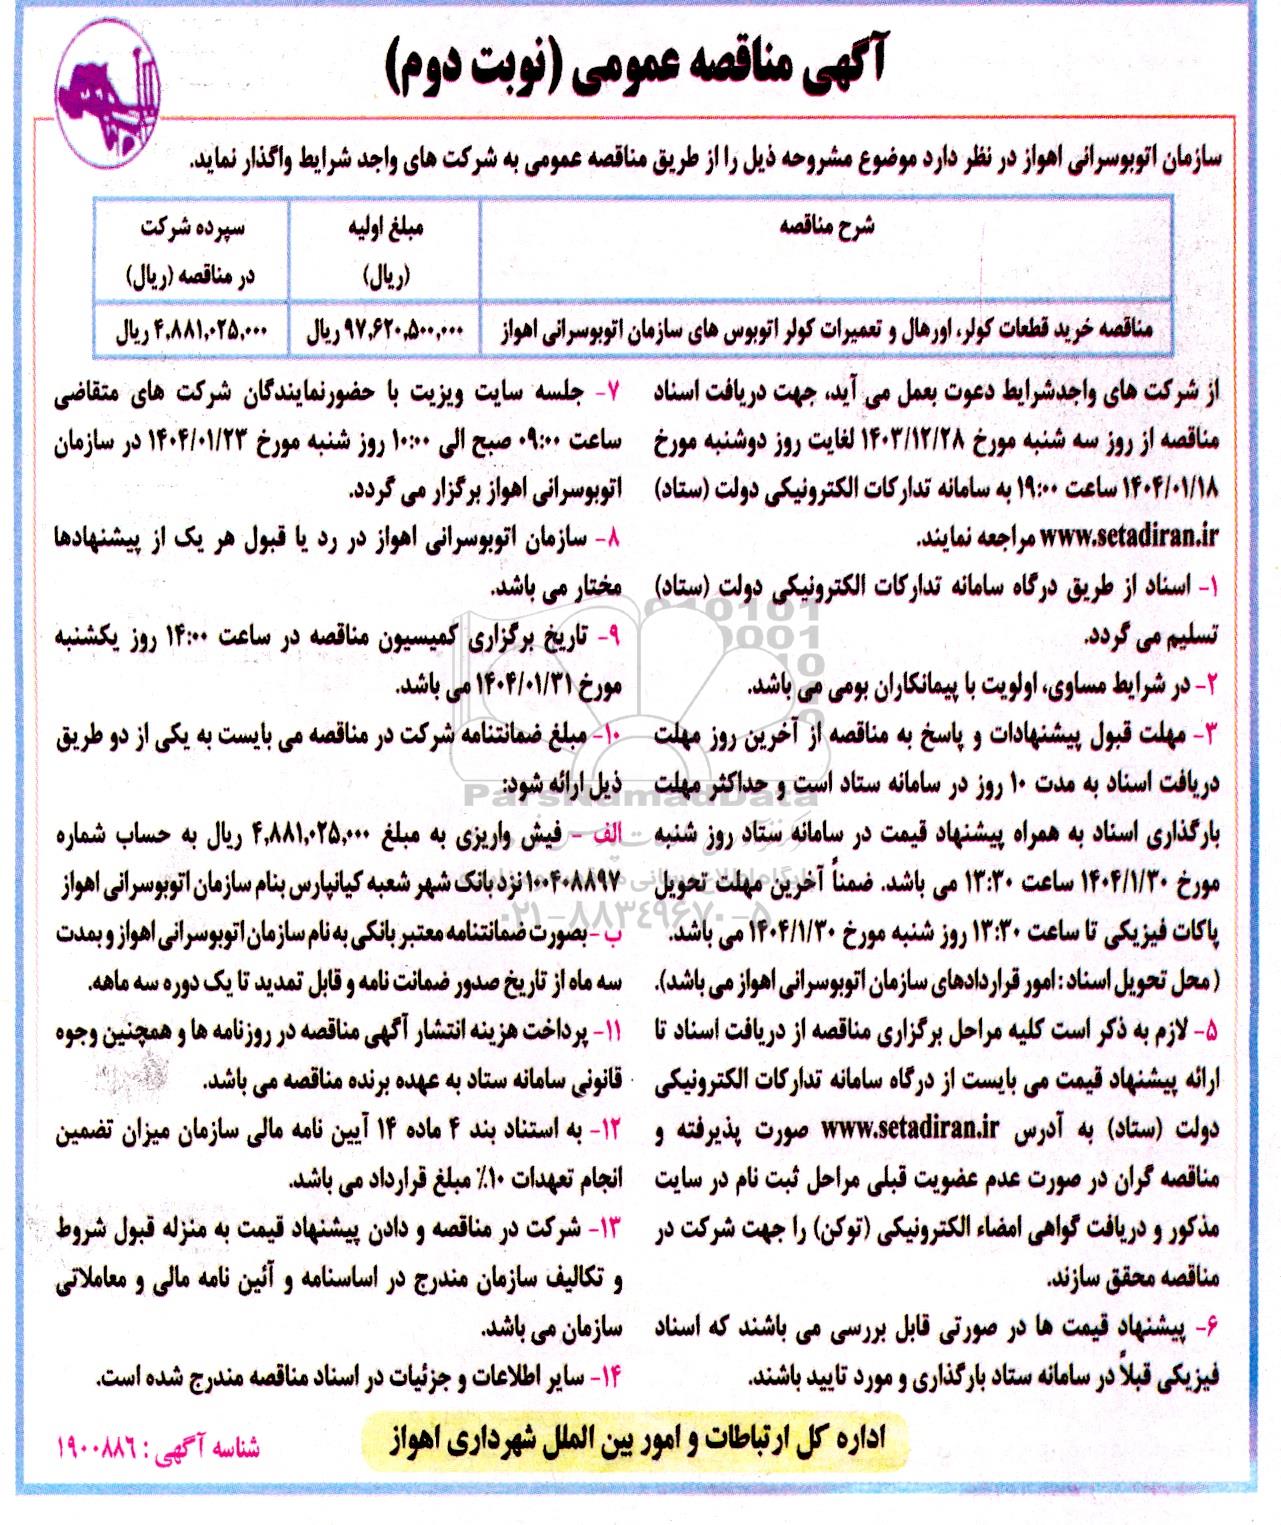 آگهی مناقصه عمومی (نوبت دوم)
سازمان اتوبوسرانی اهواز در نظر دارد موضوع مشروحه ذیل را از طریق مناقصه عمومی به شرکت های واجد شرایط واگذار نماید.
شرح مناقصه
مبلغ اولیه
(ریال)
سپرده شرکت
در مناقصه (ریال)
مناقصه خرید قطعات کولر، اورهال و تعمیرات کولر اتوبوس های سازمان اتوبوسرانی اهواز
۹۷,۶۲۰,۵۰۰,۰۰۰ ریال
۴,۸۸۱,۰۲۵,۰۰۰ ریال
از شرکت های واجدشرایط دعوت بعمل می آید، جهت دریافت اسناد
مناقصه از روز سه شنبه مورخ ۱۴۰۳/۱۲/۲۸ لغایت روز دوشنبه مورخ
۱۴۰۴/۰۱/۱۸ ساعت ۱۹:۰۰ به سامانه تدارکات الکترونیکی دولت (ستاد)
www.setadiran.ir مراجعه نمایند.
۱- اسناد از طریق درگاه سامانه تدارکات الکترونیکی دولت (ستاد)
تسلیم می گردد.
۲- در شرایط مساوی، اولویت با پیمانکاران بومی می باشد.
۳- مهلت قبول پیشنهادات و پاسخ به مناقصه از آخرین روز مهلت
دریافت اسناد به مدت ۱۰ روز در سامانه ستاد است و حداکثر مهلت
بارگذاری اسناد به همراه پیشنهاد قیمت در سامانه ستاد روز شنبه
مورخ ۱۴۰۴/۱/۳۰ ساعت ۱۳:۳۰ می باشد. ضمناً آخرین مهلت تحویل
پاکات فیزیکی تا ساعت ۱۳:۳۰ روز شنبه مورخ ۱۴۰۴/۱/۳۰ می باشد.
( محل تحویل اسناد : امور قراردادهای سازمان اتوبوسرانی اهواز می باشد).
۵- لازم به ذکر است کلیه مراحل برگزاری مناقصه از دریافت اسناد تا
ارائه پیشنهاد قیمت می بایست از درگاه سامانه تدارکات الکترونیکی
دولت (ستاد) به آدرس www.setadiran.ir صورت پذیرفته و
مناقصه گران در صورت عدم عضویت قبلی مراحل ثبت نام در سایت
مذکور و دریافت گواهی امضاء الکترونیکی (توکن) را جهت شرکت در
مناقصه محقق سازند.
۶- پیشنهاد قیمت ها در صورتی قابل بررسی می باشند که اسناد
فیزیکی قبلاً در سامانه ستاد بارگذاری و مورد تایید باشند.
۷- جلسه سایت ویزیت با حضورنمایندگان شرکت های متقاضی
ساعت ۰۹:۰۰ صبح الی ۱۰:۰۰ روز شنبه مورخ ۱۴۰۴/۰۱/۲۳ در سازمان
اتوبوسرانی اهواز برگزار می گردد.
۸- سازمان اتوبوسرانی اهواز در رد یا قبول هر یک از پیشنهادها
مختار می باشد.
۹- تاریخ برگزاری کمیسیون مناقصه در ساعت ۱۴:۰۰ روز یکشنبه
مورخ ۱۴۰۴/۰۱/۳۱ می باشد.
۱۰- مبلغ ضمانتنامه شرکت در مناقصه می بایست به یکی از دو طریق
ذیل ارائه شود:
الف - فیش واریزی به مبلغ ۴,۸۸۱,۰۲۵,۰۰۰ ریال به حساب شماره
۱۰۰۴۰۸۸۹۷ نزد بانک شهر شعبه کیانپارس بنام سازمان اتوبوسرانی اهواز
ب - بصورت ضمانتنامه معتبر بانکی به نام سازمان اتوبوسرانی اهواز و بمدت
سه ماه از تاریخ صدور ضمانت نامه و قابل تمدید تا یک دوره سه ماهه.
۱۱- پرداخت هزینه انتشار آگهی مناقصه در روزنامه ها و همچنین وجوه
قانونی سامانه ستاد به عهده برنده مناقصه می باشد.
۱۲- به استناد بند ۴ ماده ۱۴ آیین نامه مالی سازمان میزان تضمین
انجام تعهدات ۱۰٪ مبلغ قرارداد می باشد.
۱۳- شرکت در مناقصه و دادن پیشنهاد قیمت به منزله قبول شروط
و تکالیف سازمان مندرج در اساسنامه و آئین نامه مالی و معاملاتی
سازمان می باشد.
۱۴- سایر اطلاعات و جزئیات در اسناد مناقصه مندرج شده است.
اداره کل ارتباطات و امور بین الملل شهرداری اهواز
شناسه آگهی : ۱۹۰۰۸۸۶
ParsNamadData
۰۲۱-۸۸۳۴۹۶۷۰-۵